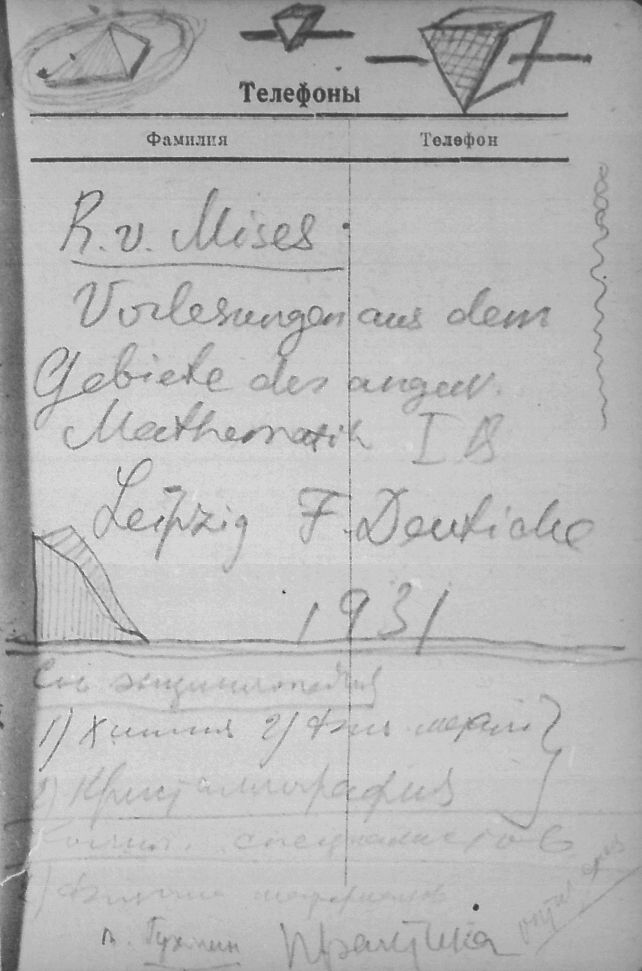 Телефоны
Фамилия Телефон
R. v. Mises
Vorlesungen aus dem
Gebiete des angew.
Mathematik I B
Leipzig F. Deuticke
1931
1) Химия 2) Физ.
Кристаллография
специалистов
1) Физика
Практика